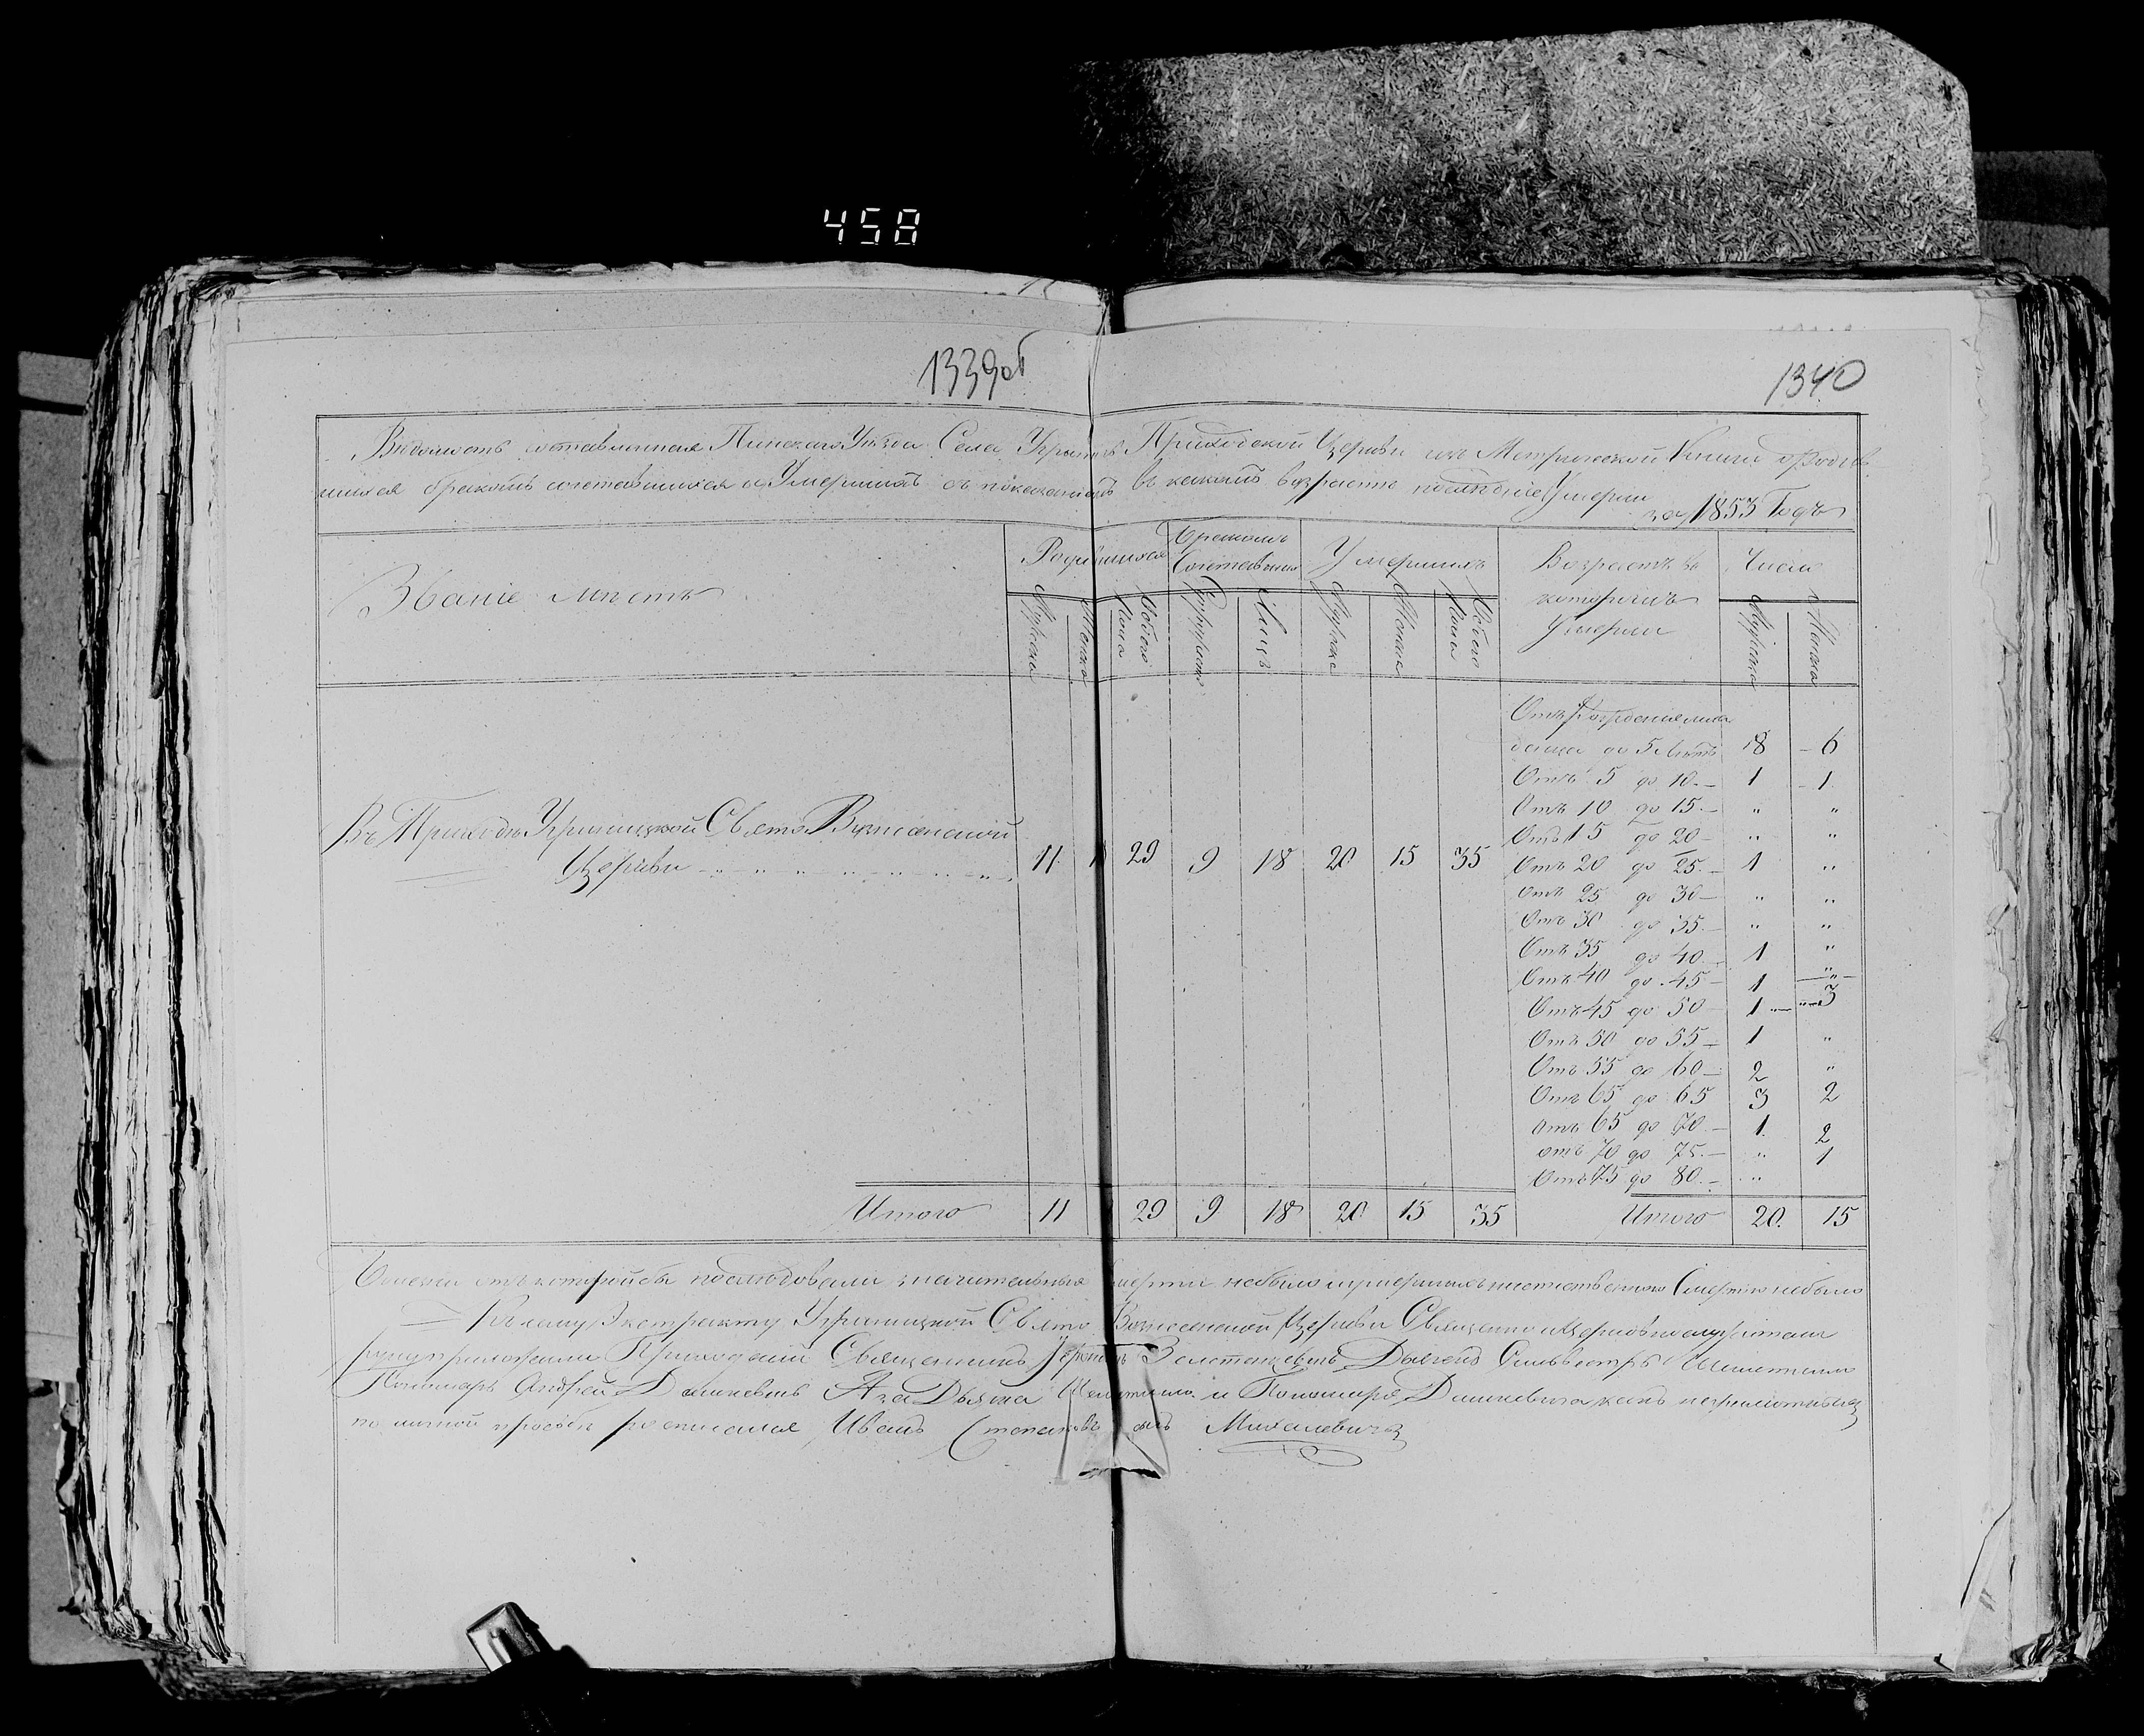 458
1339об
1340
Вѣдомость составленная Пинскаго Уѣзда Села Угринич Приходской Церкви изъ Метрической Книги о родив
шихся бракомъ сочетавшихся и Умершихъ съ показаніемъ въ какомъ возрасте послѣдніе Умерли
за 1853 Годъ
Званіе мѣстъ
Родившихся
Бракомъ Сочетавшихся
Умершихъ
Возрастъ въ которомъ Умерли
Число
Мужска Женска Обоего Пола Супружеств Лицъ Мужска Женска Обоего Пола Мужска Женска
Отъ Рожденія мла
денца до 5 Лѣтъ 8 6
Отъ 5 до 10 1 1
Отъ 10 до 15 " "
Отъ 15 до 20 " "
Въ Приходѣ Угриницкой Свято Вознесенской
Церкви 11 29 9 18 20 15 35
Отъ 20 до 25 1 "
Отъ 25 до 30 " "
Отъ 30 до 35 " "
Отъ 35 до 40 1 "
Отъ 40 до 45 1 "
Отъ 45 до 50 1 3
Отъ 50 до 55 1 "
Отъ 55 до 60 2 "
Отъ 65 до 65 3 2
Отъ 65 до 70 1 2
отъ 70 до 75 " 1
Отъ 75 до 80 "
Итого 11 29 9 18 20 15 35 Итого 20 15
отъ которой бы последовали значительныя смерти небыло и умершихъ неестественною Смертью небыло
Къ сему Экстракту Угриницкой Свято Вознесенской Церкви Священно и Церковнослужители
руку приложили Приходскій Священникъ Дьячекъ Сильвестръ
Пономарь Андрей Данкевичъ А за Дьячка и Пономаря Данкевича какъ неграмотныхъ
по личной прозьбе росписался Иванъ Степановъ сынъ Михалевичъ